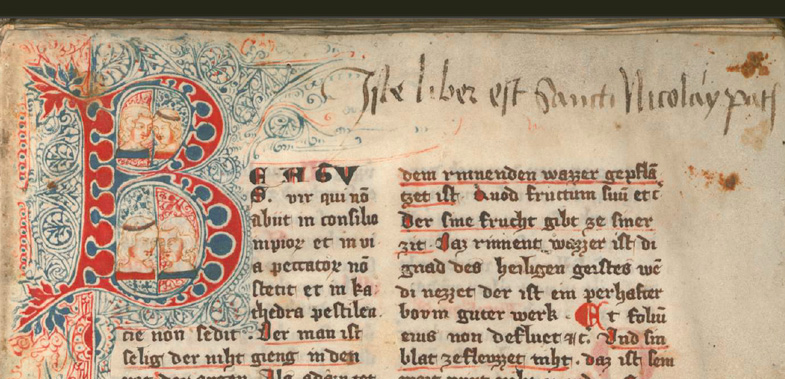 Iste liber est Sancti Nicolay
B EATV
S. vir qui nō
abiit in consilio
impioꝝ et in vi
a peccatoꝝ nō
stetit et in ka
thedra pestilen
cie non sedit. Der man ist
selig der niht gieng in den
dem rinnenden wazzer gepflā
tzet ist. Quod fructum suū etc̄
Der sine frucht gibt ze siner
zit. Daz rinnent wazzer ist di
gnad des heiligen geistes wē
di nezzet der ist ein perhafter
bovm guter werk. Et foliū
eius non defluet ⁊c. Vnd sin
blat zefleuzzet niht. daz ist sein